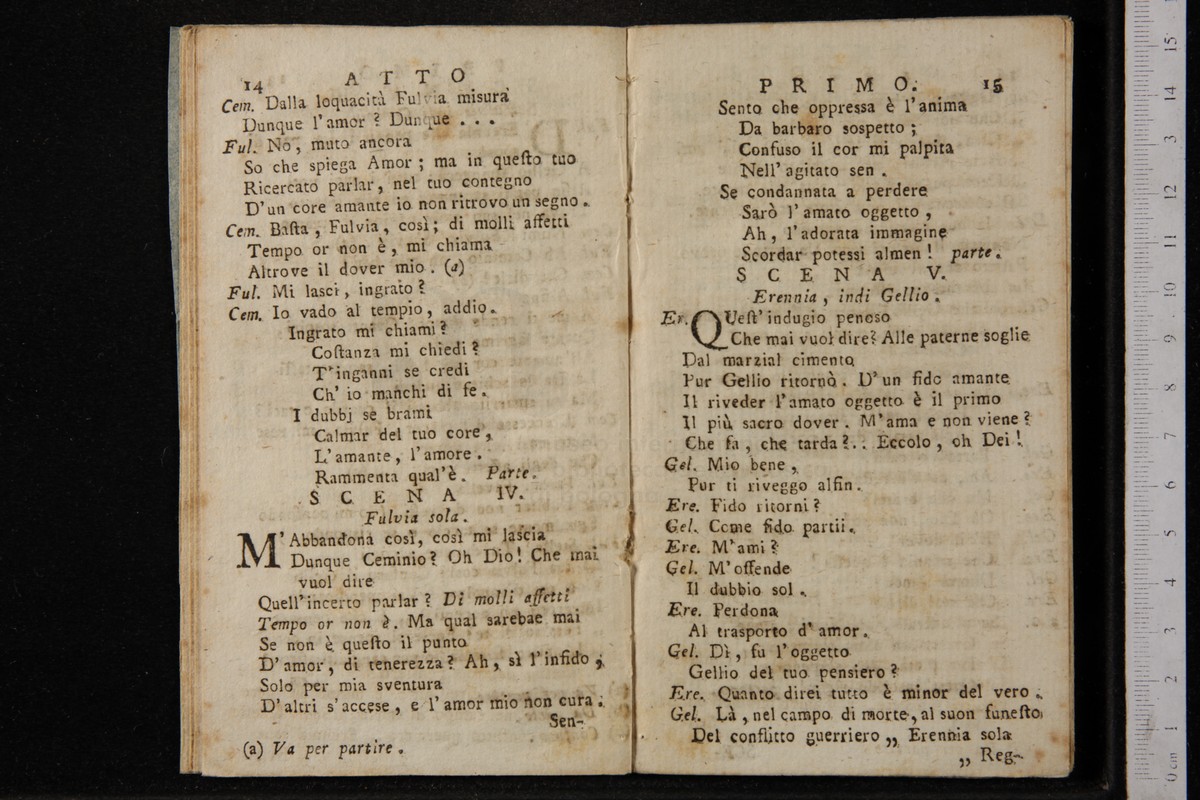 14 ATTO
Cem. Dalla loquacità Fulvia misura
Dunque l'amor? Dunque . . .
Ful. No, muto ancora
So che spiega Amor; ma in queſto tuo
Ricercato parlar, nel tuo contegno
D'un core amante io non ritrovo un segno.
Cem. Baſta, Fulvia, così; di molli affetti
Tempo or non è, mi chiama
Altrove il dover mio. (a)
Ful. Mi lasci, ingrato?
Cem. Io vado al tempio, addio.
Ingrato mi chiami?
Coſtanza mi chiedi?
T'inganni se credi
Ch' io manchi di fe.
I dubbj se brami
Calmar del tuo core,
L'amante, l'amore.
Rammenta qual'è. Parte.
SCENA IV.
Fulvia sola.
M'Abbandona così, così mi lascia
Dunque Ceminio? Oh Dio! Che mai
vuol dire
Quell'incerto parlar? Di molli affetti
Tempo or non è. Ma qual sarebae mai
Se non è queſto il punto
D'amor, di tenerezza? Ah, sì l'infido,
Solo per mia sventura
D'altri s'accese, e l'amor mio non cura.
Sen-
(a) Va per partire.
PRIMO. 15
Sento che oppressa è l'anima
Da barbaro sospetto;
Confuso il cor mi palpita
Nell' agitato sen.
Se condannata a perdere
Sarò l'amato oggetto,
Ah, l'adorata immagine
Scordar potessi almen! parte.
SCENA V.
Erennia, indi Gellio.
Er. QUeſt' indugio penoso
Che mai vuol dire? Alle paterne soglie
Dal marzial cimento
Pur Gellio ritornò. D'un fido amante
Il riveder l'amato oggetto è il primo
Il più sacro dover. M'ama e non viene?
Che fa, che tarda?.. Eccolo, oh Dei!
Gel. Mio bene,
Pur ti riveggo alfin.
Ere. Fido ritorni?
Gel. Come fido partii.
Ere. M'ami?
Gel. M'offende
Il dubbio sol.
Ere. Perdona
Al trasporto d'amor.
Gel. Dì, fu l'oggetto
Gellio del tuo pensiero?
Ere. Quanto direi tutto è minor del vero.
Gel. Là, nel campo di morte, al suon funeſto
Del conflitto guerriero „ Erennia sola
„ Reg-
0 cm 1 2 3 4 5 6 7 8 9 10 11 12 13 14 15